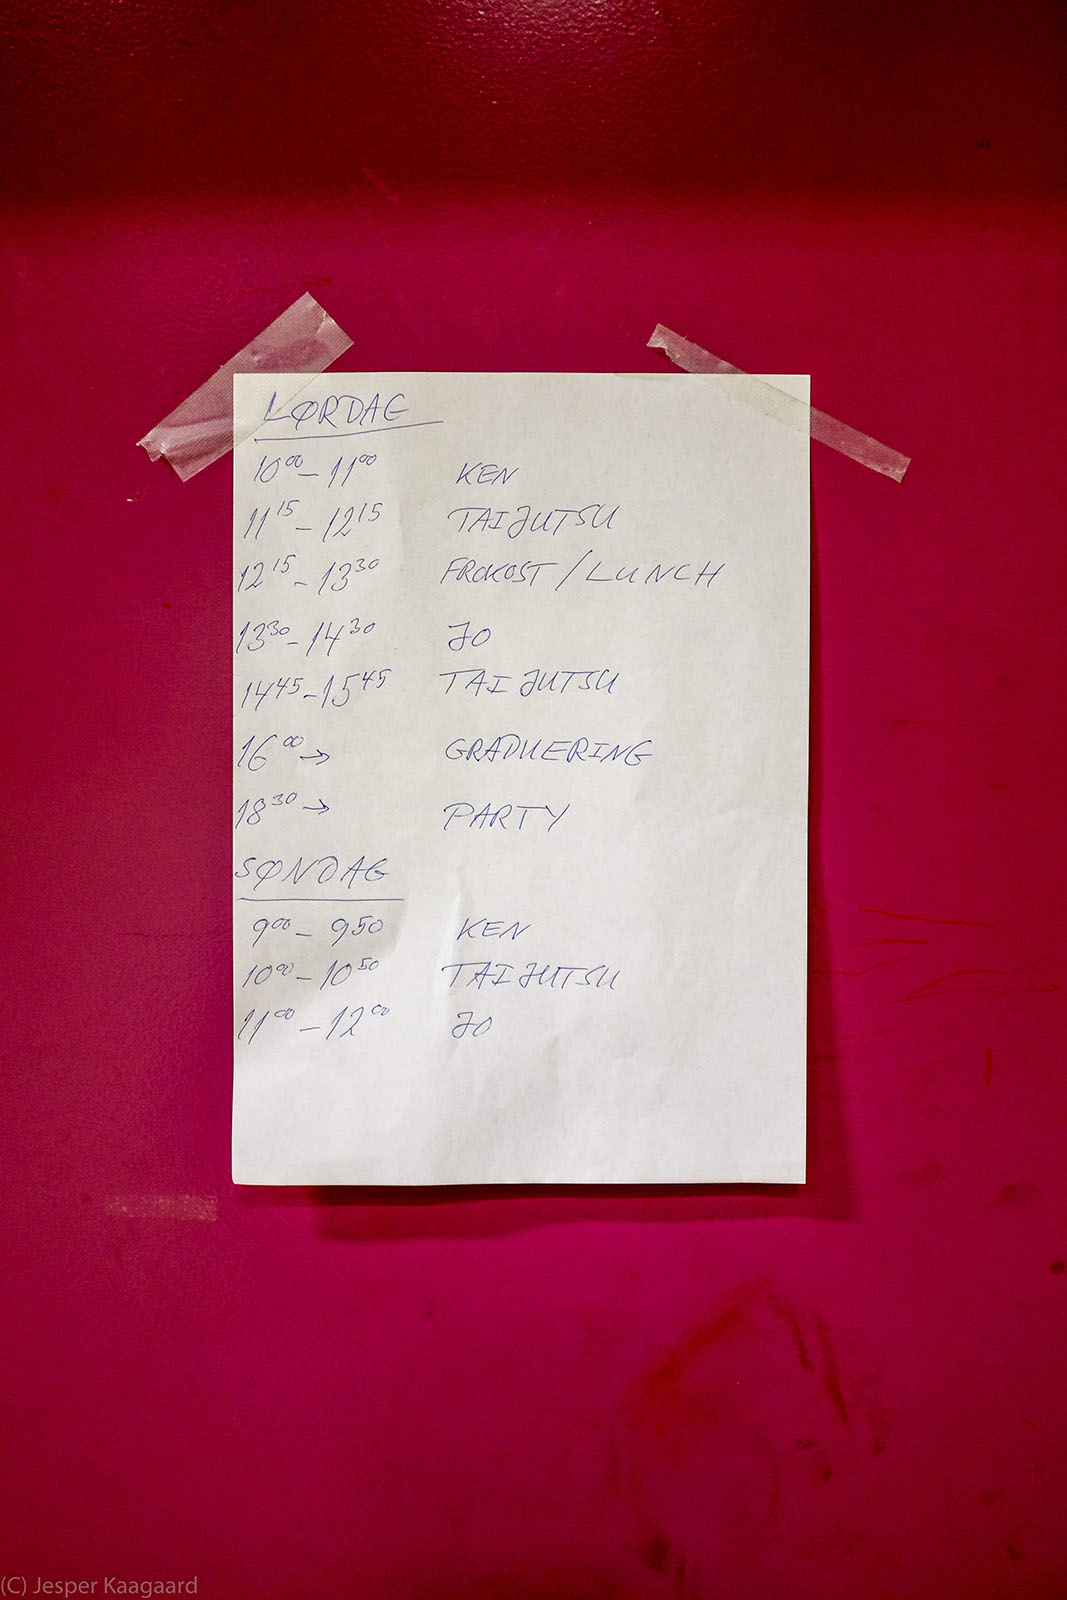 LØRDAG
10⁰⁰ - 11⁰⁰ KEN
11¹⁵ - 12¹⁵ TAIJUTSU
12¹⁵ - 13³⁰ FROKOST / LUNCH
13³⁰ - 14³⁰ JO
14⁴⁵ - 15⁴⁵ TAIJUTSU
16⁰⁰ → GRADUERING
18³⁰ → PARTY
SØNDAG
9⁰⁰ - 9⁵⁰ KEN
10⁰⁰ - 10⁵⁰ TAIJUTSU
11⁰⁰ - 12⁰⁰ JO
(C) Jesper Kaagaard